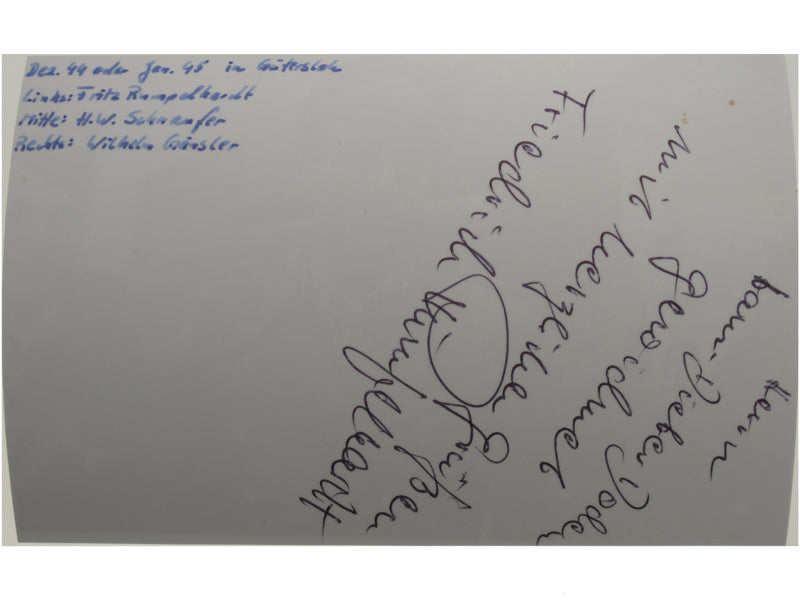 Dez. 44 oder Jan. 45 in Gütersloh
Links: Fritz Rumpelhardt
Mitte: H.W. Schnaufer
Rechts: Wilhelm Gänsler
Herrn
Hans-Dieter
mit herzlichen Grüßen
Friedrich Rumpelhardt